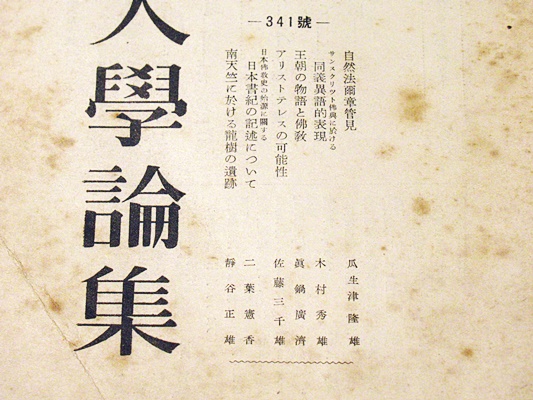 —341號—
自然法爾章管見 瓜生津隆雄
サンスクリット佛典に於ける
同義異語的表現 木村秀雄
王朝の物語と佛教 眞鍋廣濟
アリストテレスの可能性 佐藤三千雄
日本佛教史の始源に關する
日本書紀の記述について 二葉憲香
南天竺に於ける龍樹の遺跡 靜谷正雄
大學論集